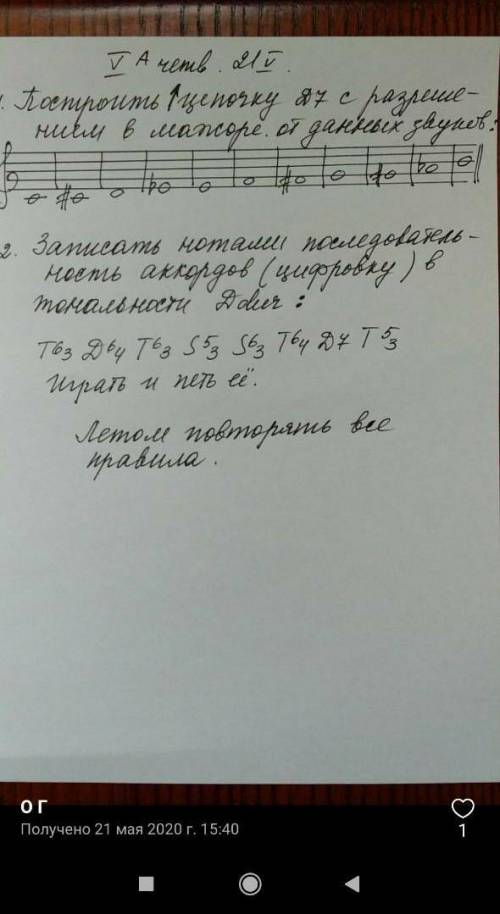 V А четв. 21 V.
1. Построить ↑ цепочку Д7 с разреше-
нием в мажоре от данных звуков:
2. Записать нотами последователь-
ность аккордов (цифровку) в
тональности D dur:
T63 Д64 T63 S53 S63 T64 Д7 T53
Играть и петь её.
Летом повторять все
правила.
О Г
Получено 21 мая 2020 г. 15:40
1